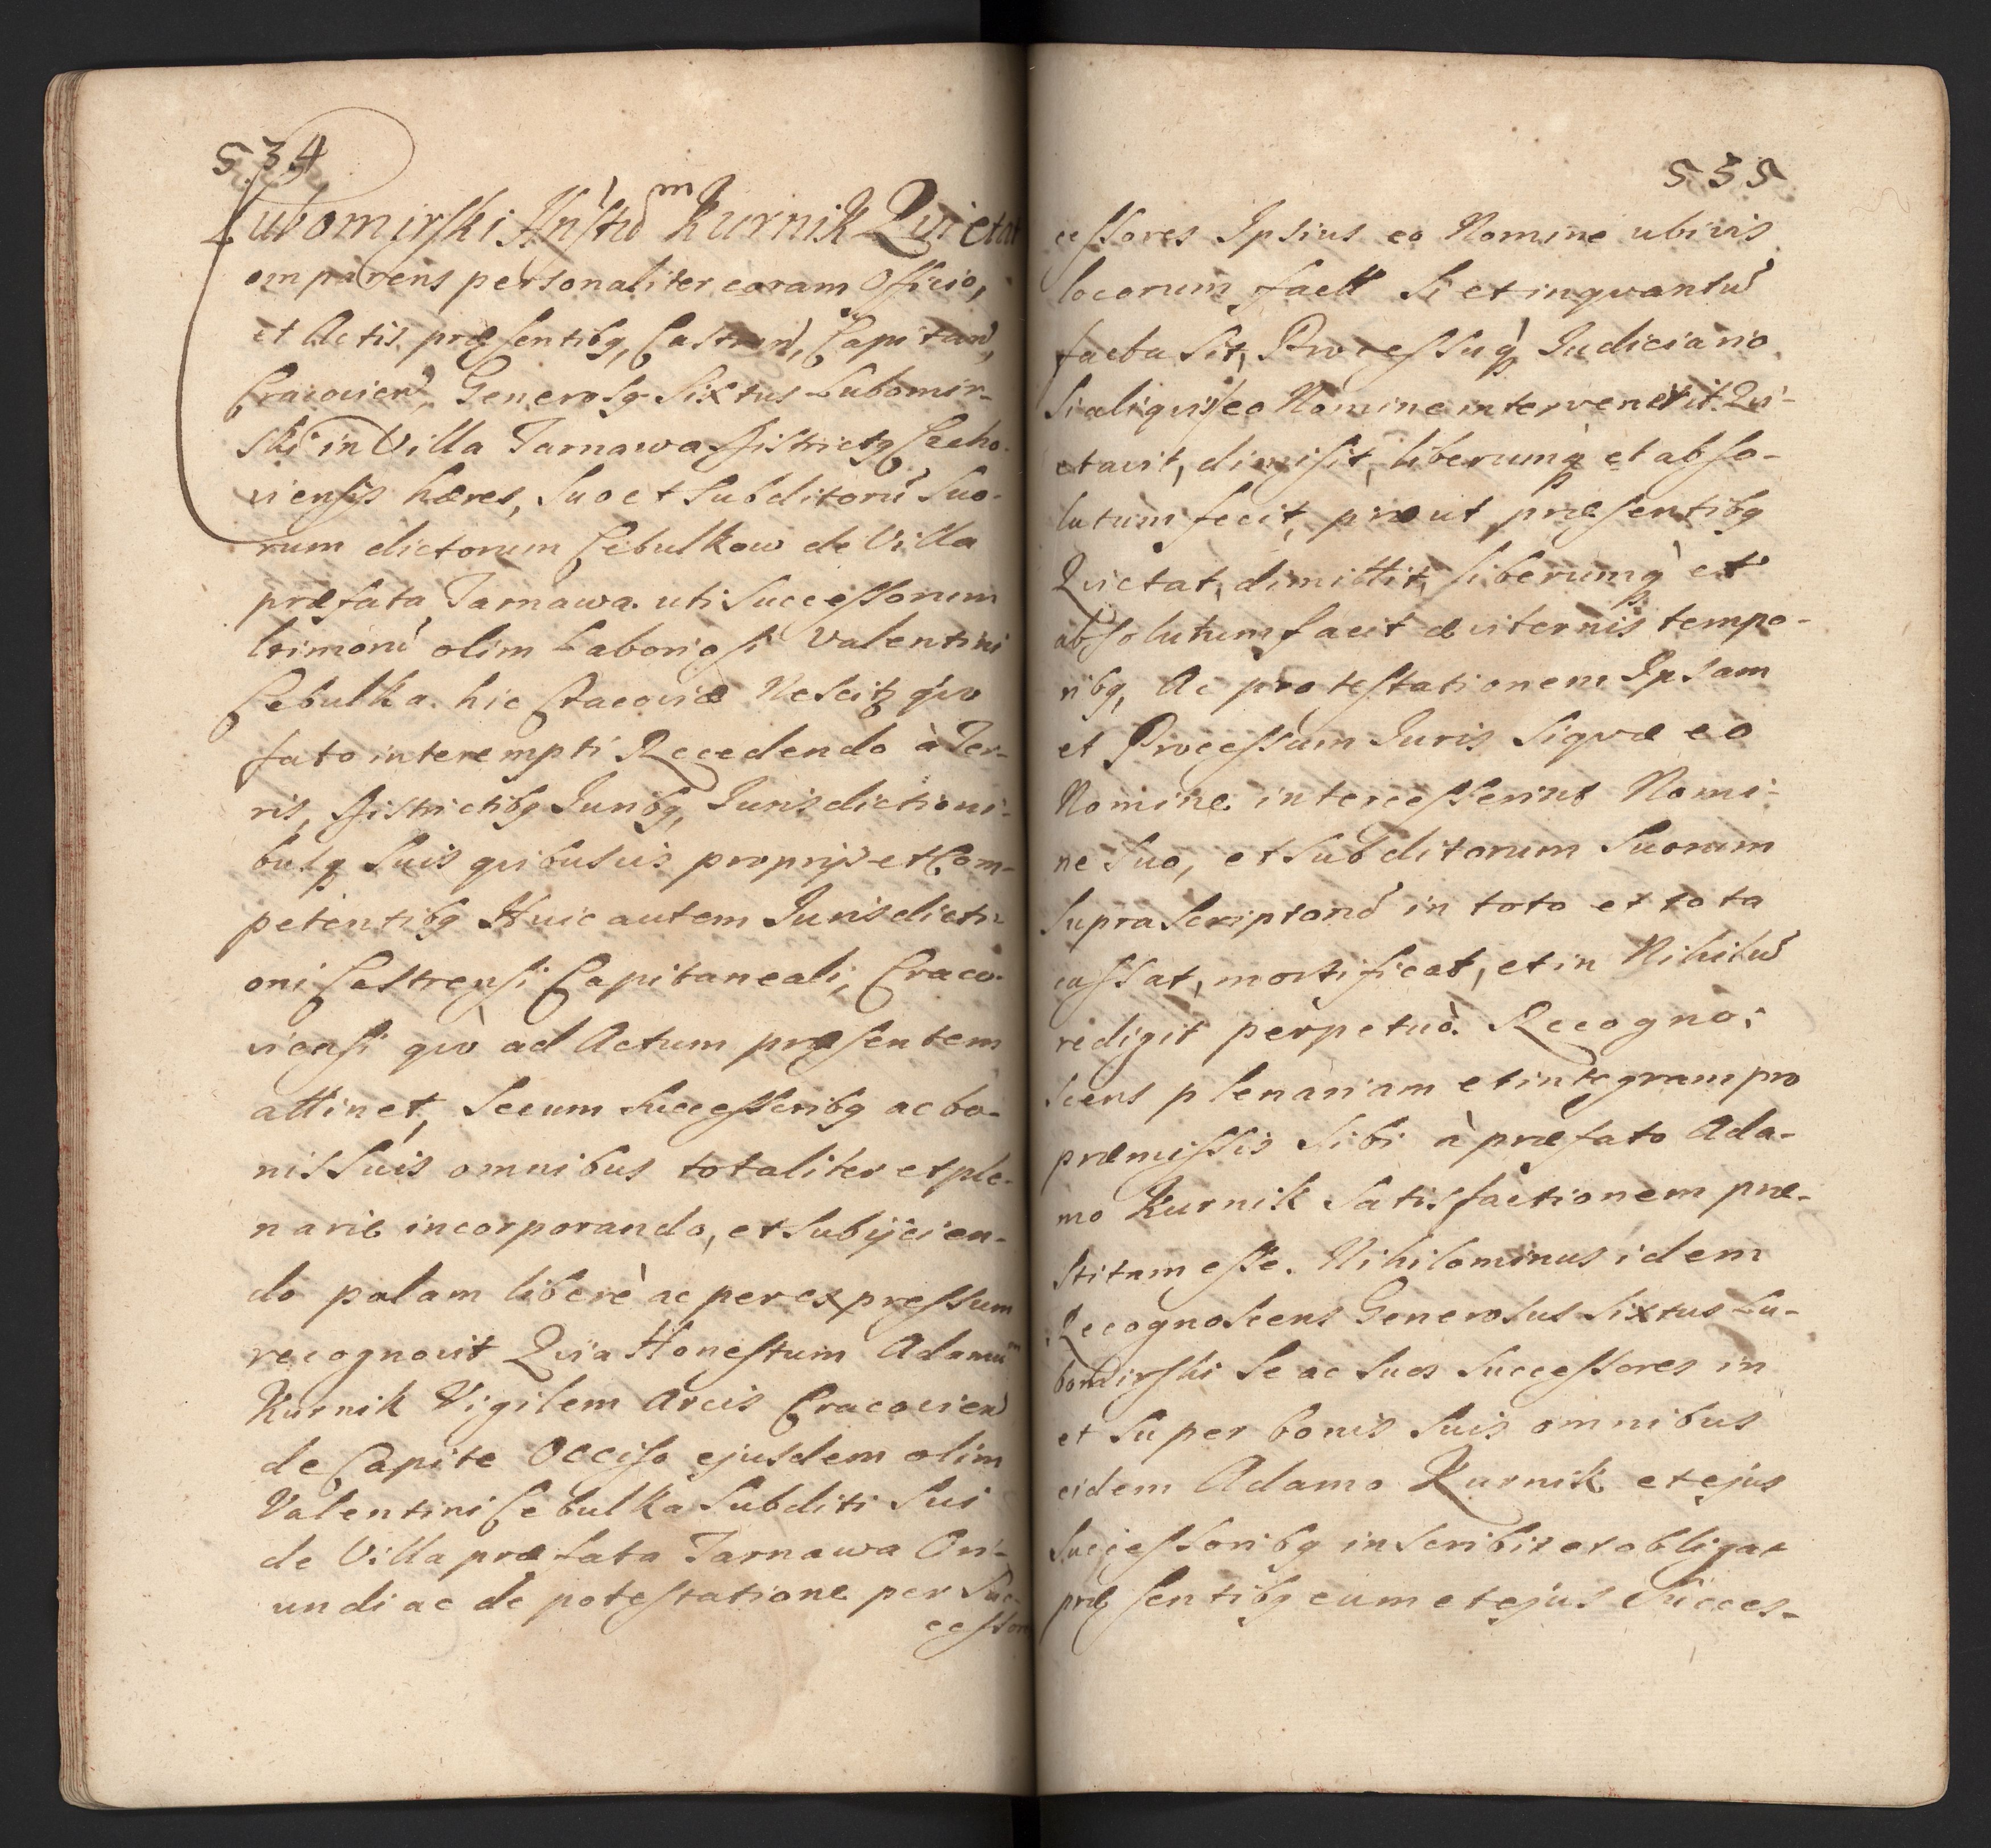 534
Lubomirſki Hnſtũ m Kurnik Quietat
omparens personaliter coram Officio,
et Actis præſentibq, Castren, Capitan,
Cracovien, Generosq Sixtus Lubomir-
ski in Villa Tarnawa Districtq Czcho-
vienſis hæres, Suo et Subditorũ Suo-
rum dictorum Cebulkow de Villa
præfata Tarnawa. uti Succeſſorum
olim Laborioſi Valentini
Cebulka. hic Cracoviæ Nescitq qvo
fato interempti Recedendo à Ter-
ris, Districtibq Juribq, Jurisdictioni-
busq Suis qvibusvis proprijs et Com-
petentibq Huic autem Jurisdicti-
oni Caſtrenſi Capitaneali, Craco-
vienſi qvò ad Actum præſentem
attinet, Secum Succeſſoribq ac bo-
nis Suis omnibus totaliter et ple-
narie incorporando, et Subijcien-
do palam liberè ac per expreſſum
recognovit Qvia Honeſtum Adamũ
Kurnik Vigilem Arcis Cracovien
de Capite Occiſo ejusdem olim
Valentini Cebulka Subditi Sui
de Villa præfata Tarnawa Ori-
undi ac de poteſtatione per Suc-
ceſſor
535
ceſſores Ipsius eo Nomine ubivis
locorum fact Si et inqvantũ
facta Sit, Proceſſuq Judiciario
Si aliqvis eo Nomine intervenerit. Qvi-
etavit, dimisit, liberumq et abſo-
lutum fecit, prout præſentibq
Qvietat, dimittit, liberumq et
abſolutum facit æviternis tempo-
ribq, Ac proteſtationem Ipsam
et Proceſſum Juris Siqvæ eo
Nomine interceſſerint Nomi-
ne Suo, et Subditorum Suorum
Supra Scriptorũ in toto et tota
caſſat, mortificat, et in Nihilũ
redigit perpetuò. Recogno-
scens plenariam et integram pro
præmiſſis Sibi à præfato Ada-
mo Kurnik Satisfactionem præ-
ſtitam eſſe. Nihilominus idem
Recognoscens Generosus Sixtus Lu-
bomirſki Se ac Suos Succeſſores in
et Super bonis Suis omnibus
eidem Adamo Kurnik et ejus
Succeſſoribq inscribit et obligat
præſentibq eum et ejus Succes-